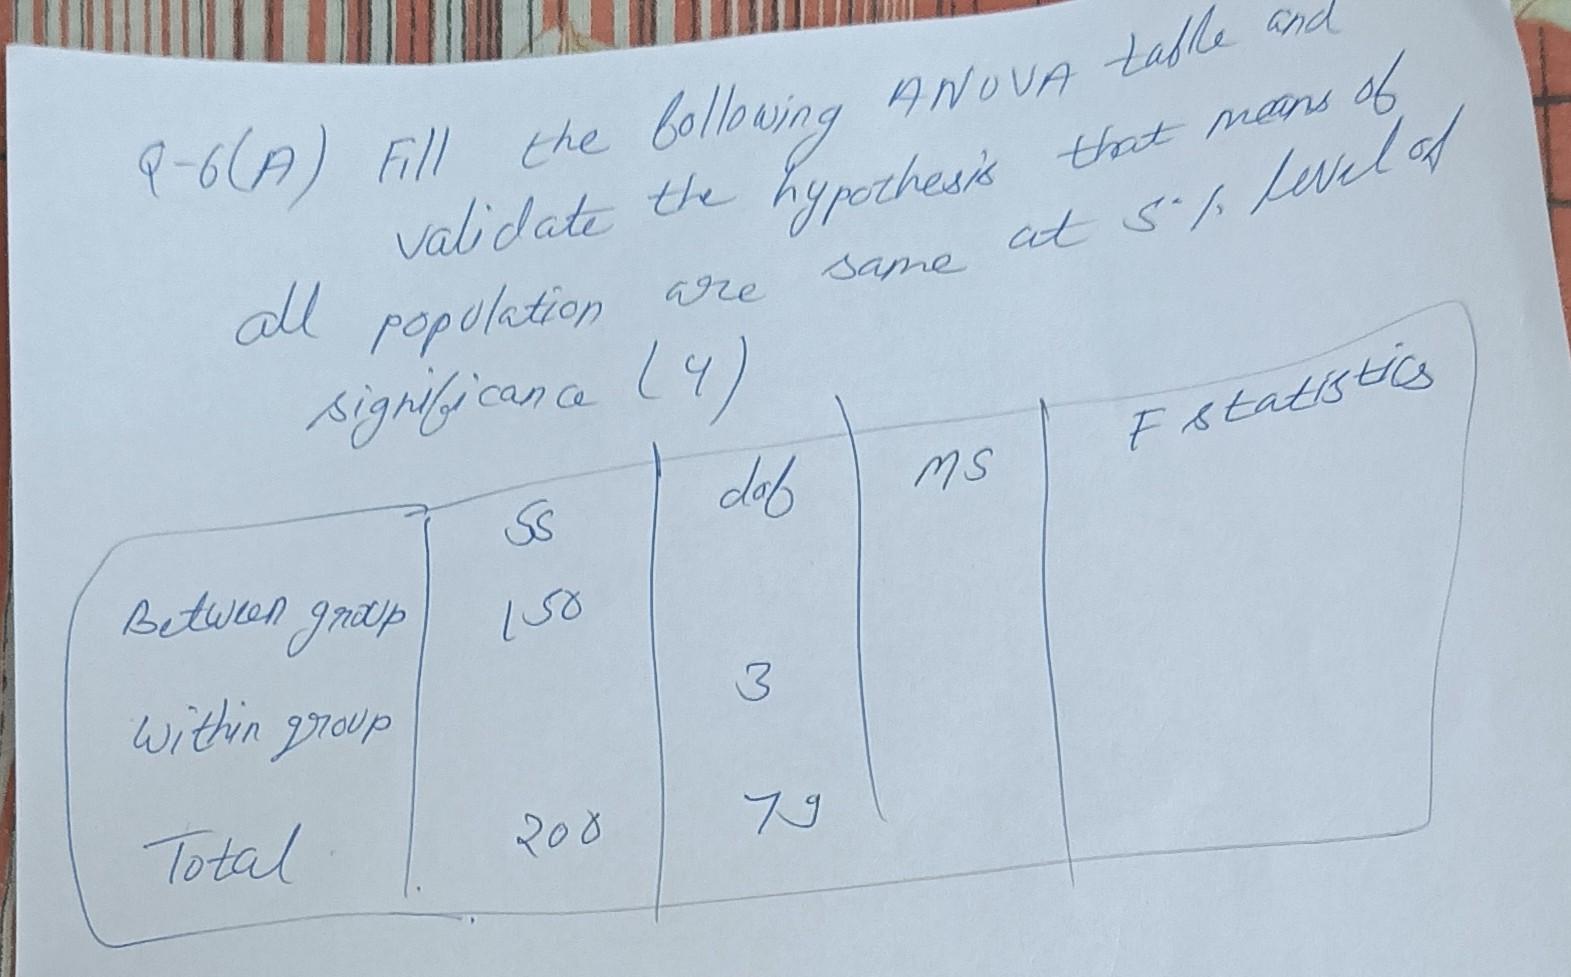 Q-6(A) Fill the following ANOVA table and
validate the hypothesis that means of
all population are same at 5% level of
significance (4)
SS dof MS F statistics
Between group 150
3
Within group
Total 200 79